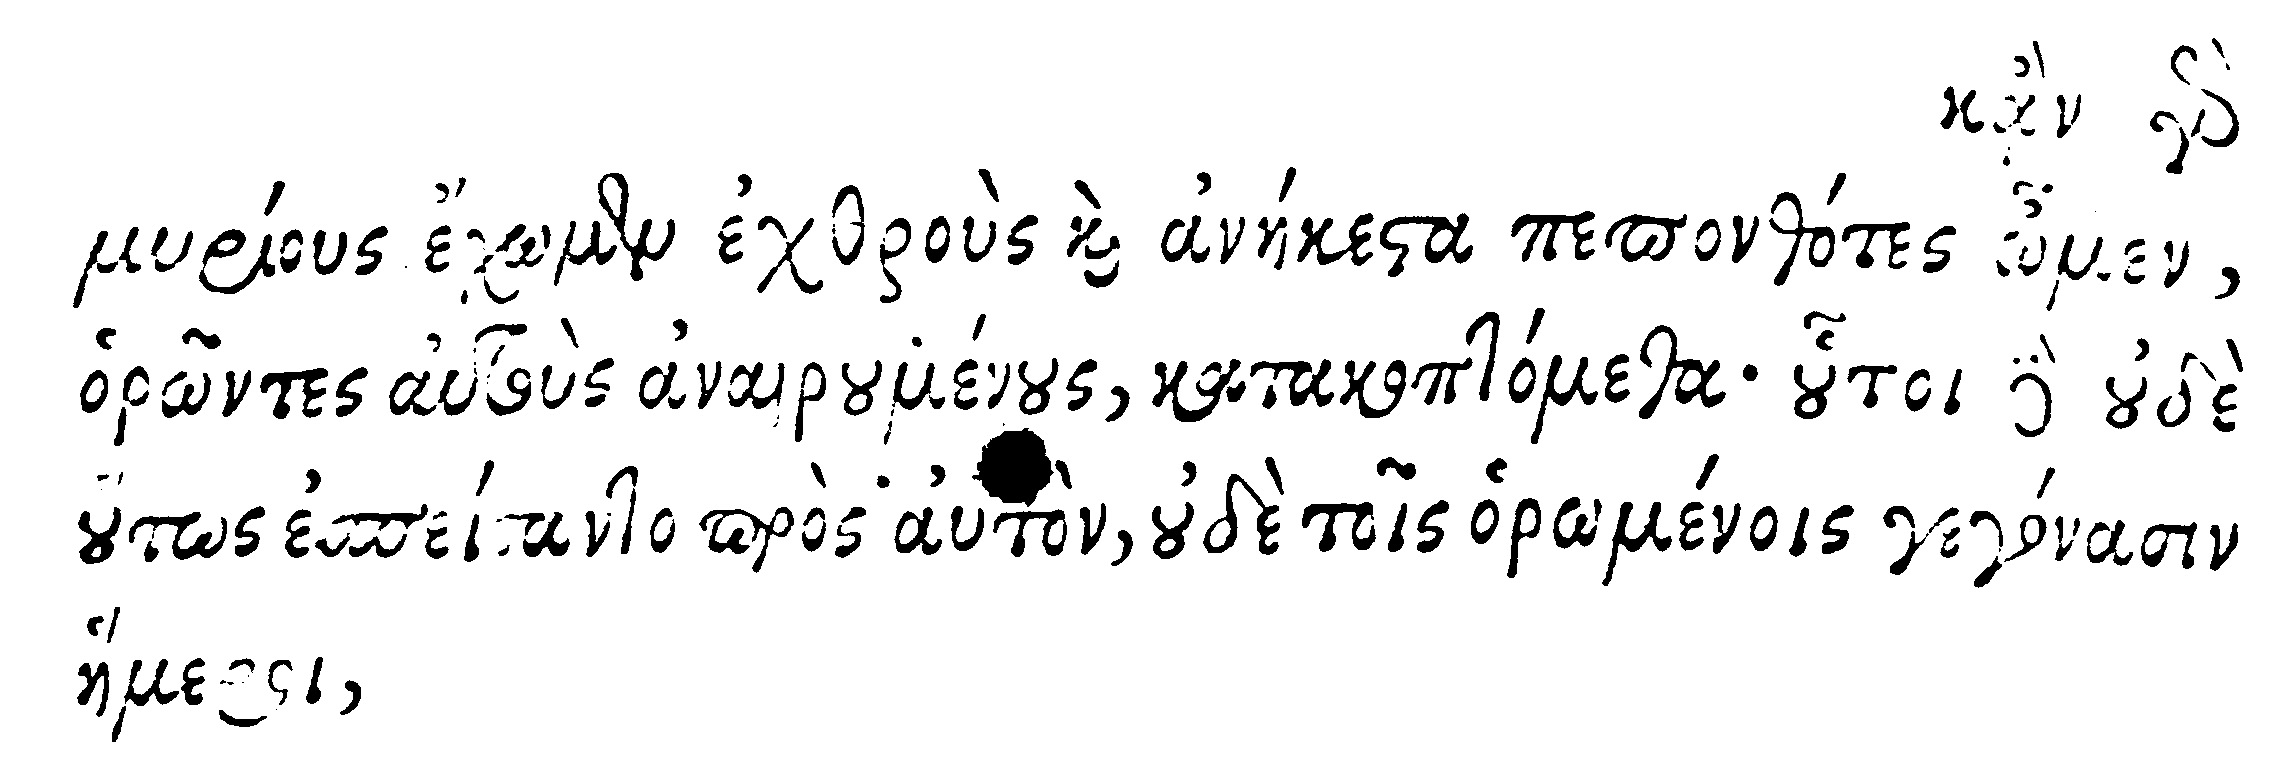 κἂν γὰρ
μυρίους ἔχωμεν ἐχθροὺς καὶ ἀνήκεστα πεπονθότες ὦμεν,
ὁρῶντες αὐτοὺς ἀναιρουμένους, κατακοπτόμεθα· οὗτοι δὲ οὐδὲ
οὕτως ἐπεπείραντο πρὸς αὐτὸν, οὐδὲ τοῖς ὁρωμένοις γεγόνασιν
ἥμεροι,